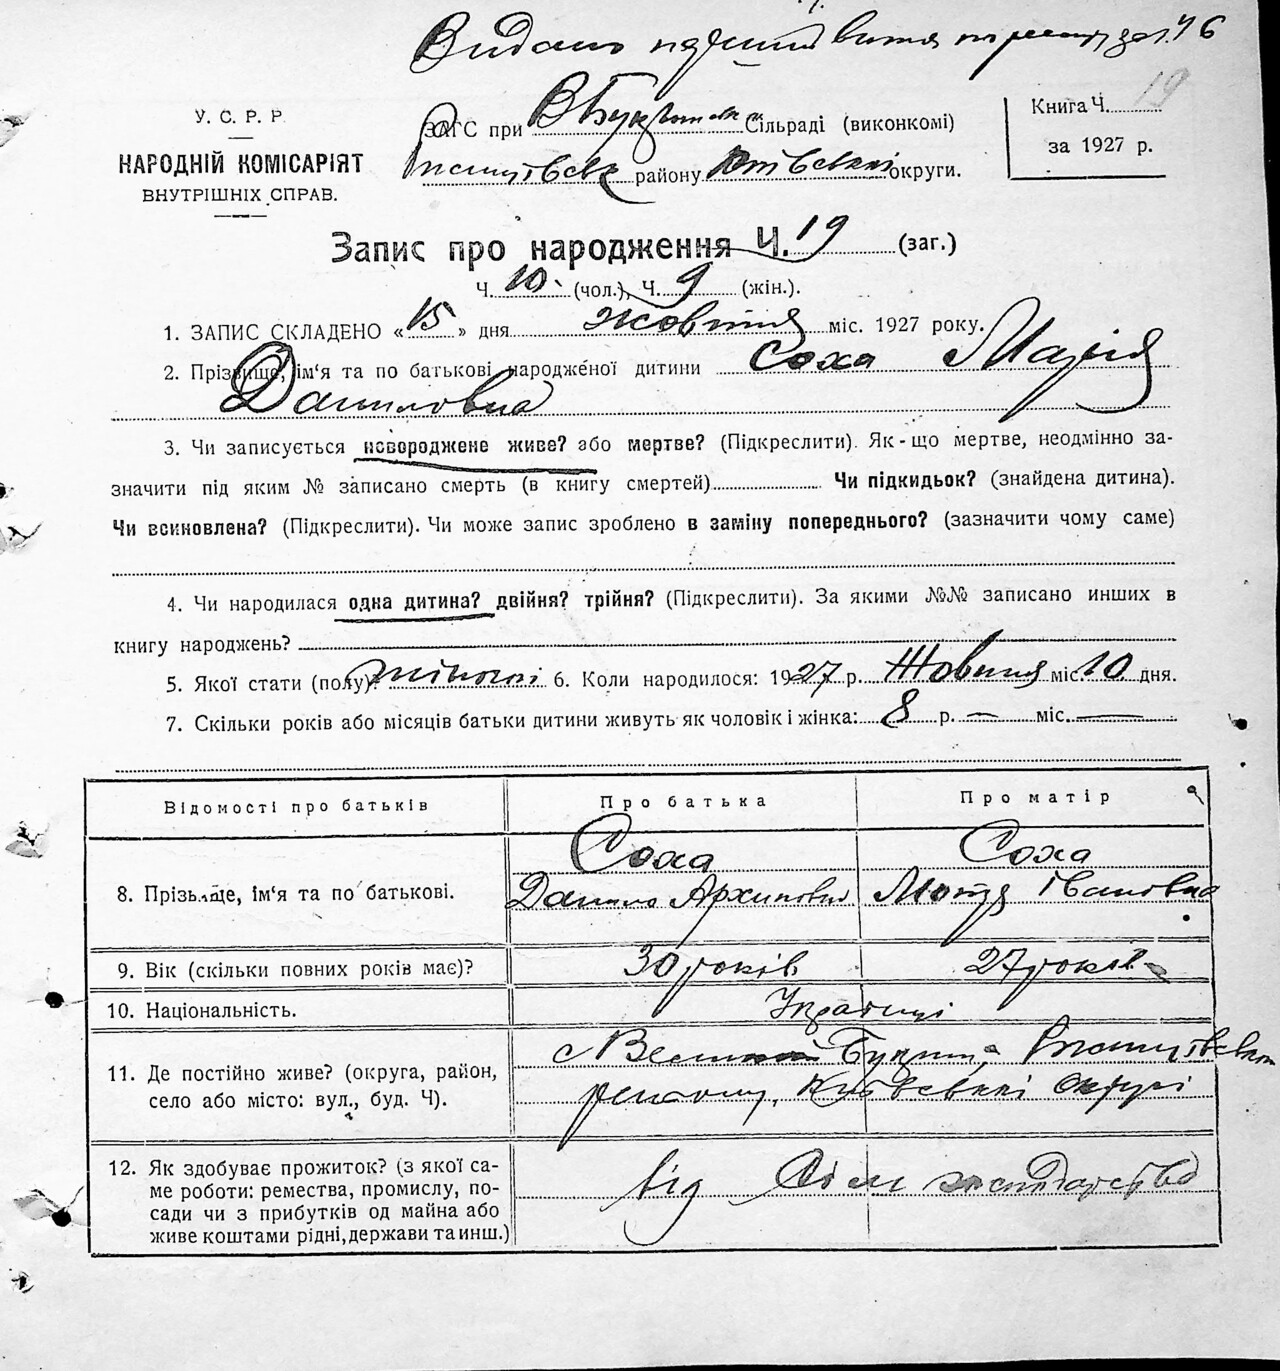 Видано
У. С. Р. Р.
НАРОДНІЙ КОМІСАРІЯТ
ВНУТРІШНІХ СПРАВ.
ЗАГС при Сільраді (виконкомі)
району Київській округи.
Книга Ч. 19
за 1927 р.
Запис про народження Ч. 19 (заг.)
Ч. 10 (чол.), Ч. 9 (жін.).
1. ЗАПИС СКЛАДЕНО «15» дня жовтня міс. 1927 року.
2. Прізвище, ім'я та по батькові народженої дитини Соха Марія
Даниловна
3. Чи записується новороджене живе? або мертве? (Підкреслити). Як-що мертве, неодмінно за-
значити під яким № записано смерть (в книгу смертей) Чи підкидьок? (знайдена дитина).
Чи всиновлена? (Підкреслити). Чи може запис зроблено в заміну попереднього? (зазначити чому саме)
4. Чи народилася одна дитина? двійня? трійня? (Підкреслити). За якими №№ записано инших в
книгу народжень?
5. Якої стати (полу)? жіночої 6. Коли народилося: 1927 р. Жовтня міс. 10 дня.
7. Скільки років або місяців батьки дитини живуть як чоловік і жінка: 8 р. — міс. —
Відомості про батьків Про батька Про матір
8. Прізвище, ім'я та по батькові. Соха Данило Архипович Соха Мотря Івановна
9. Вік (скільки повних років має)? 30 років 27 років
10. Національність. Українці
11. Де постійно живе? (округа, район,
село або місто: вул., буд. Ч). с Великий Букрин
Київської округи
12. Як здобуває прожиток? (з якої са-
ме роботи: ремества, промислу, по-
сади чи з прибутків од майна або
живе коштами рідні, держави та инш.) від Сільгосподарства